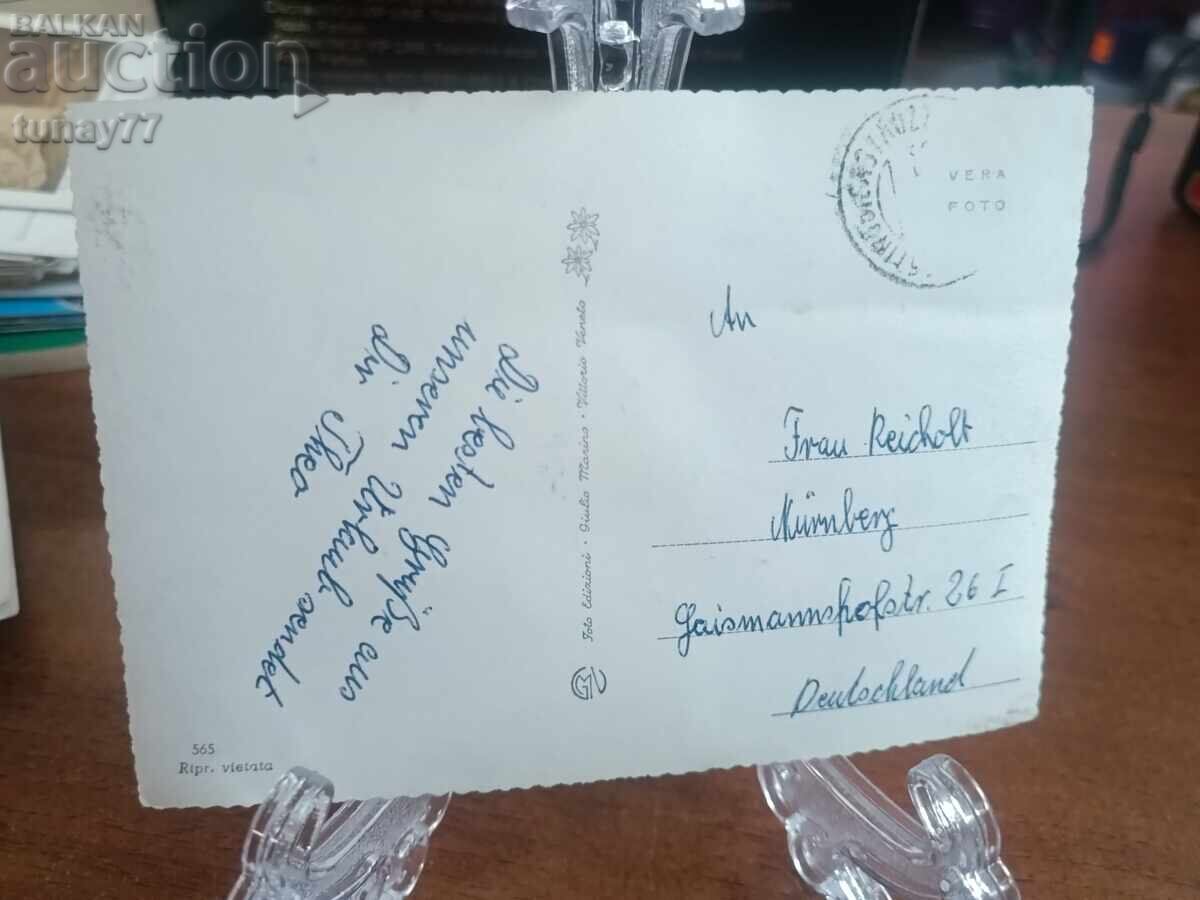 BALKAN
auction
tunay77
VERA
FOTO
die besten Grüße aus
unseren Urlaub sendet
dir Theo
Foto Edizioni - Giulio Marino - Vittorio Veneto
An
Frau Reicholt
Nürnberg
Gaismannshofstr. 26 I
Deutschland
565
Ripr. vietata